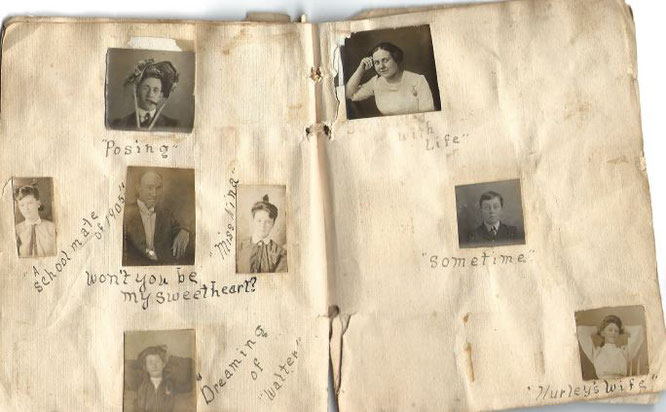 "Posing"
"A
schoolmate
of 1905"
"Miss Nina"
Won't you be
my sweetheart?
"Dreaming
of
Walter"
with
Life"
"Sometime"
"Hurley's Wife"